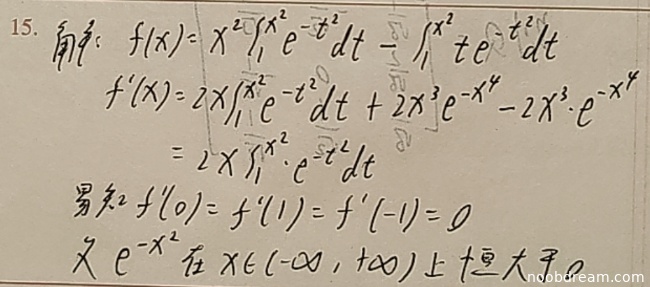 15. 解: f(x)= x²∫₁^{x²} e^{-t²}dt - ∫₁^{x²} te^{-t²}dt
f'(x)= 2x∫₁^{x²} e^{-t²}dt + 2x³e^{-x⁴} - 2x³·e^{-x⁴}
= 2x∫₁^{x²}·e^{-t²}dt
易知 f'(0)= f'(1)= f'(-1)=0
又 e^{-x²} 在 x∈(-∞, +∞)上恒大于0
noobdream.com